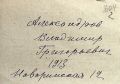 Александров
Владимир
Григорьевич
1913
Наваринская 12